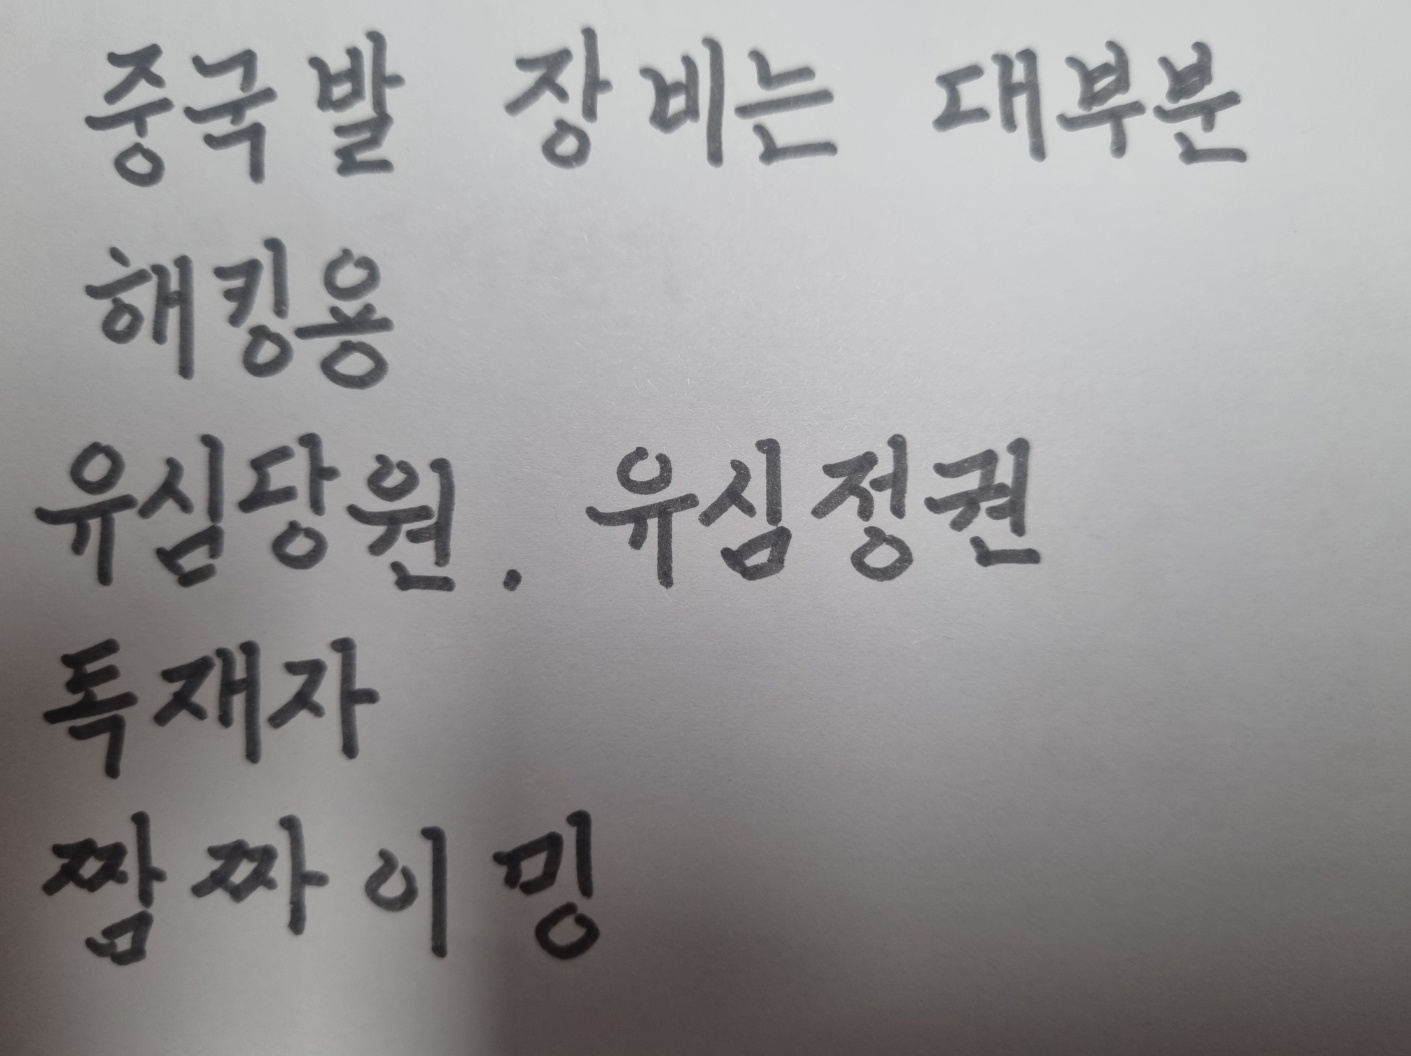 중국발 장비는 대부분
해킹용
유심당원. 유심정권
독재자
찜짜이밍